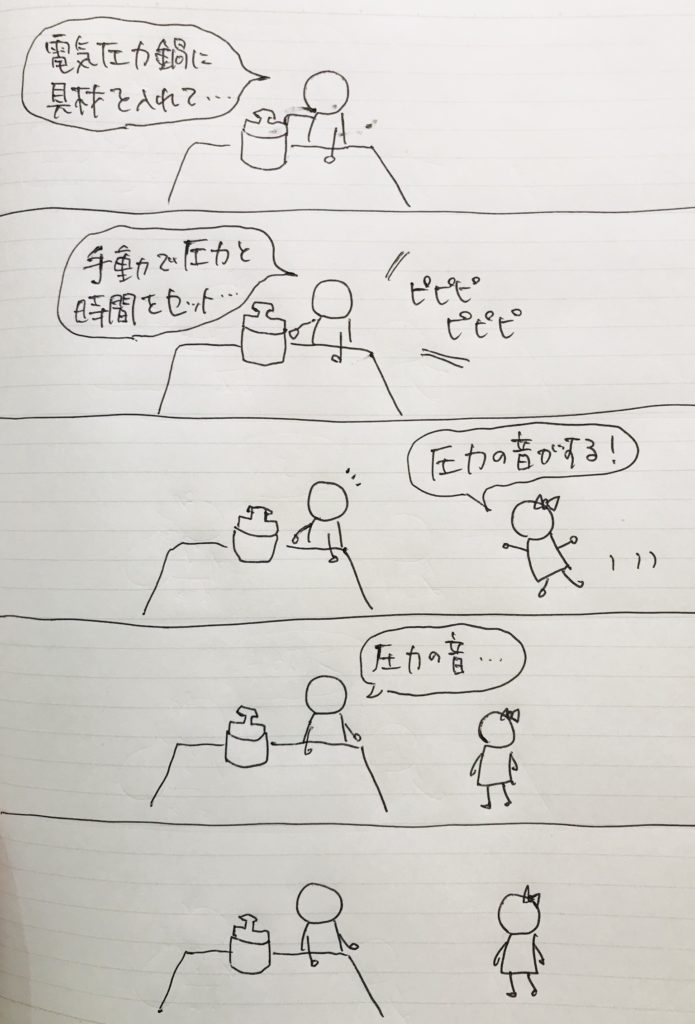 電気圧力鍋に
具材を入れて…
手動で圧力と
時間をセット…
ピピピ
ピピピ
圧力の音がする!
圧力の音…